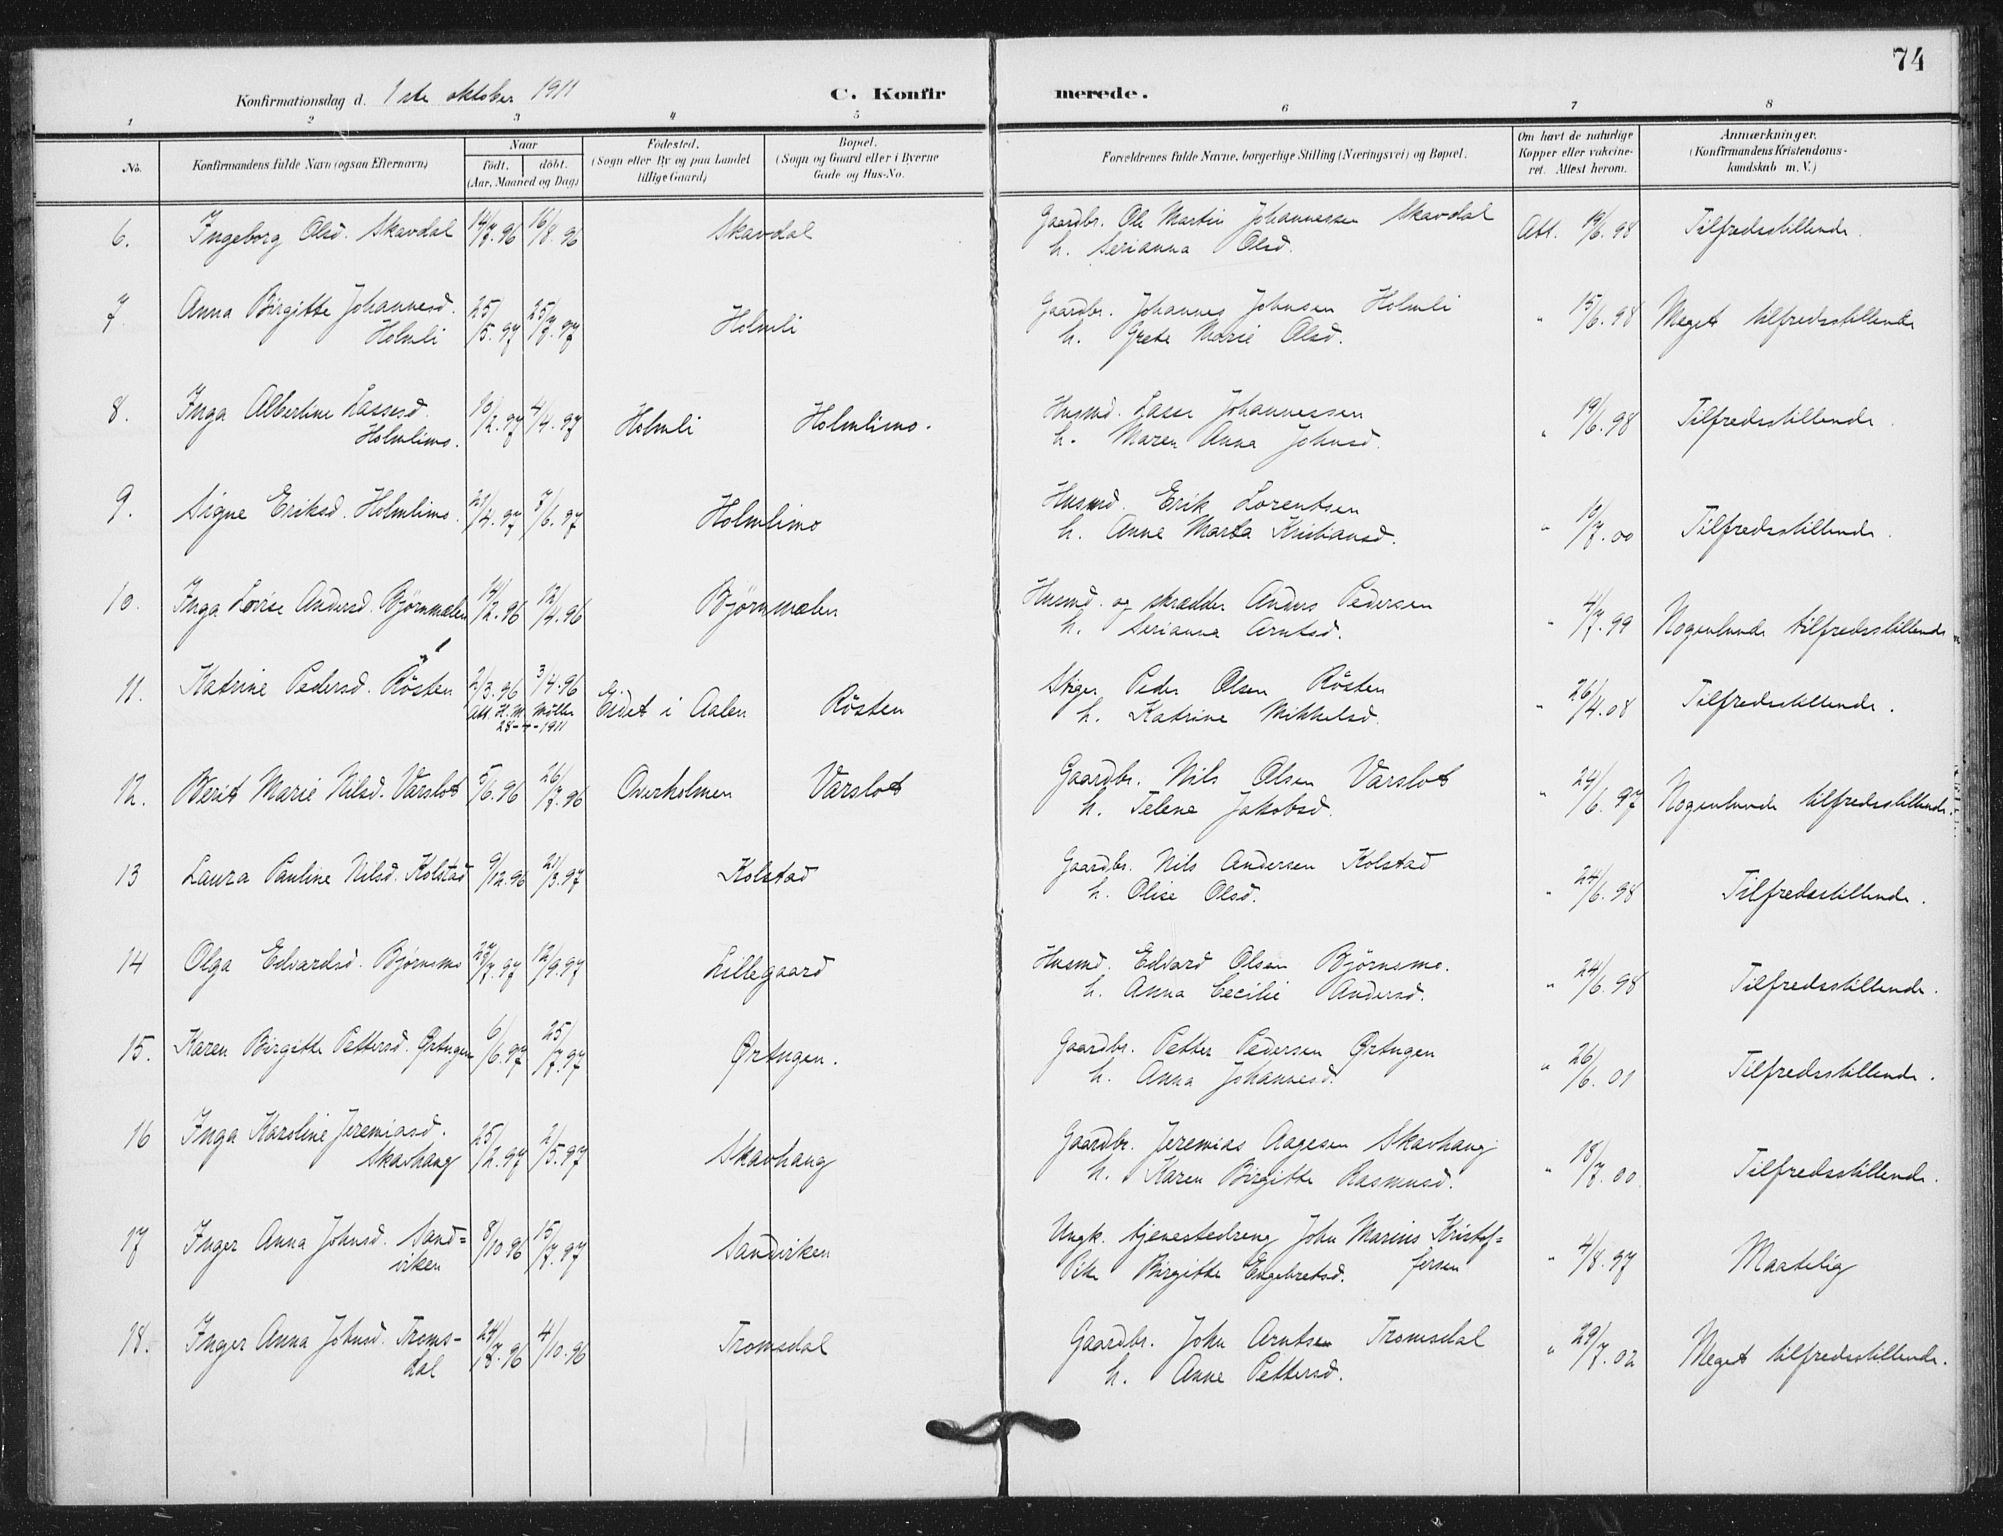 74
Konfirmationsdag d. 1ste oktober 1911 C. Konfir merede.
1 2 3 4 5 6 7 8
No. Konfirmandens fulde Navn (ogsaa Efternavn) Naar født. døbt. (Aar, Maaned og Dag) Fødested. (Sogn eller By og paa Landet tillige Gaard) Bopæl. (Sogn og Gaard eller i Byerne Gade og Hus-No. Forældrenes fulde Navne, borgerlige Stilling (Næringsvei) og Bopæl. Om havt de naturlige Kopper eller vakcineret. Attest herom. Anmærkninger. (Konfirmandens Kristendomskundskab m. V.)
6. Ingeborg Olsd. Skavdal 14/7.96 16/8.96 Skavdal Gaardbr. Ole Martin Johannessen Skavdal Att. 19/6.98 Tilfredsstillende.
h. Serianna Olsd.
7 Anna Birgitte Johannesd. 25/5.97 25/7.97 Holmli Gaardbr. Johannes Johnsen Holmli " 15/6.98 Meget tilfredsstillende
Holmli h. Grete Marie Olsd.
8. Inga Albertine Lassesd. 10/2.97 4/4.97 Holmli Holmlimo. Husmd. Lasse Johannessen " 19/6.98 Tilfredsstillende.
Holmlimo. h. Maren Anna Johnsd.
9. Signe Eriksd. Holmlimo. 21/4.97 7/6.97 Holmlimo Husmd. Erik Lorentsen " 19/7.00 Tilfredsstillende.
h. Anne Marta Kristiansd.
10. Inga Lovise Andersd. Bjørnmælen 14/2.96 12/4.96 Bjørnmælen Husmd. og skrædder Anders Pedersen " 4/7.99 Nogenlunde tilfredsstillende
h. Serianna Arntsd.
11. Katrine Pedersd. Røsten 2/3.96 3/4.96 Eidet i Aalen Røsten Stiger Peder Olsen Røsten " 26/4.08 Tilfredsstillende.
Att. H. M. Möller h. Katrine Mikkelsd.
1911
12. Berit Marie Nilsd. Varslot 5/6.96 26/7.96 Overholmen Varslot Gaardbr. Nils Olsen Varslot " 24/6.97 Nogenlunde tilfredsstillende.
h. Telene Jakobsd.
13 Laura Pauline Nilsd. Kolstad 9/12.96 21/3.97 Kolstad Gaardbr. Nils Andersen Kolstad " 24/6.98 Tilfredsstillende.
h. Olise Olsd.
14 Olga Edvardsd. Bjørnsmo 27/7.97 12/9.97 Lillegaard Husmd. Edvard Olsen Bjørnsmo. " 24/6.98 Tilfredsstillende.
h. Anna Cecilie Andersd.
15. Karen Birgitte Pettersd. Ørtugen 6/6.97 25/7.97 Ørtugen. Gaardbr. Petter Pedersen Ørtugen " 26/6.01 Tilfredsstillende.
h. Anna Johannesd.
16 Inga Karoline Jeremiasd. 25/2.97 2/5.97 Skavhaug Gaardbr. Jeremias Aagesen Skavhaug " 18/7.00. Tilfredsstillende.
Skavhaug h. Karen Birgitte Rasmusd.
17 Inger Anna Johnsd. Sand= 8/10 96 15/7.97 Sandviken Ungk. tjenestedreng John Marius Kristof= " 4/8.97 Maatelig
viken Pike Birgitte Engebretsd. fersen
18. Inger Anna Johnsd. Troms- 24/8.96 4/10.96 Tromsdal Gaardbr. John Arntsen Tromsdal " 29/7.02 Meget tilfredsstillende.
dal h. Anne Pettersd.